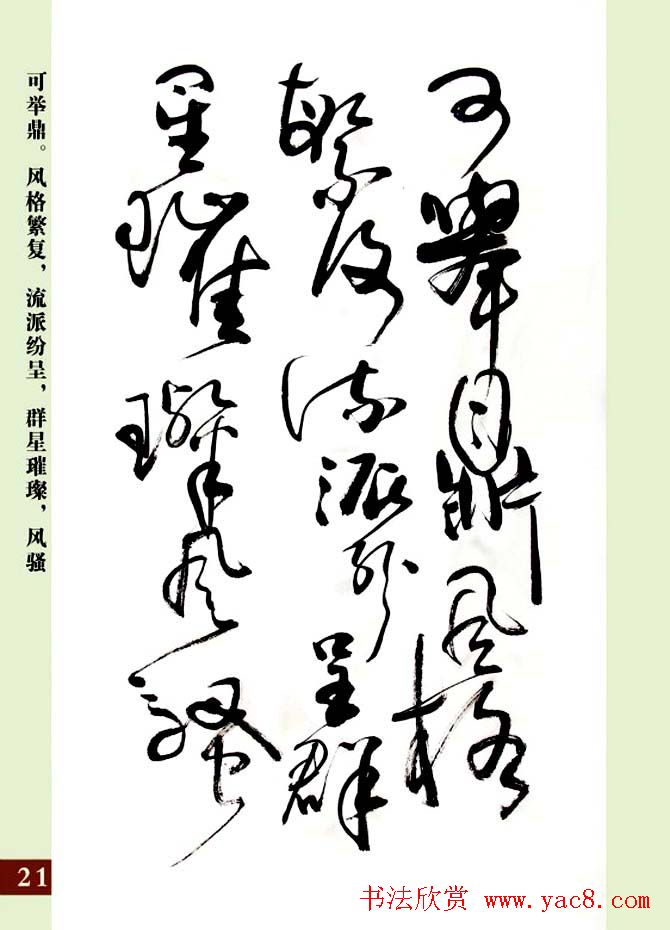 可举鼎。风格繁复，流派纷呈，群星璀璨，风骚
可舉鼎風格
繁復流派紛呈群
星璀璨風騷
21
书法欣赏 www.yac8.com